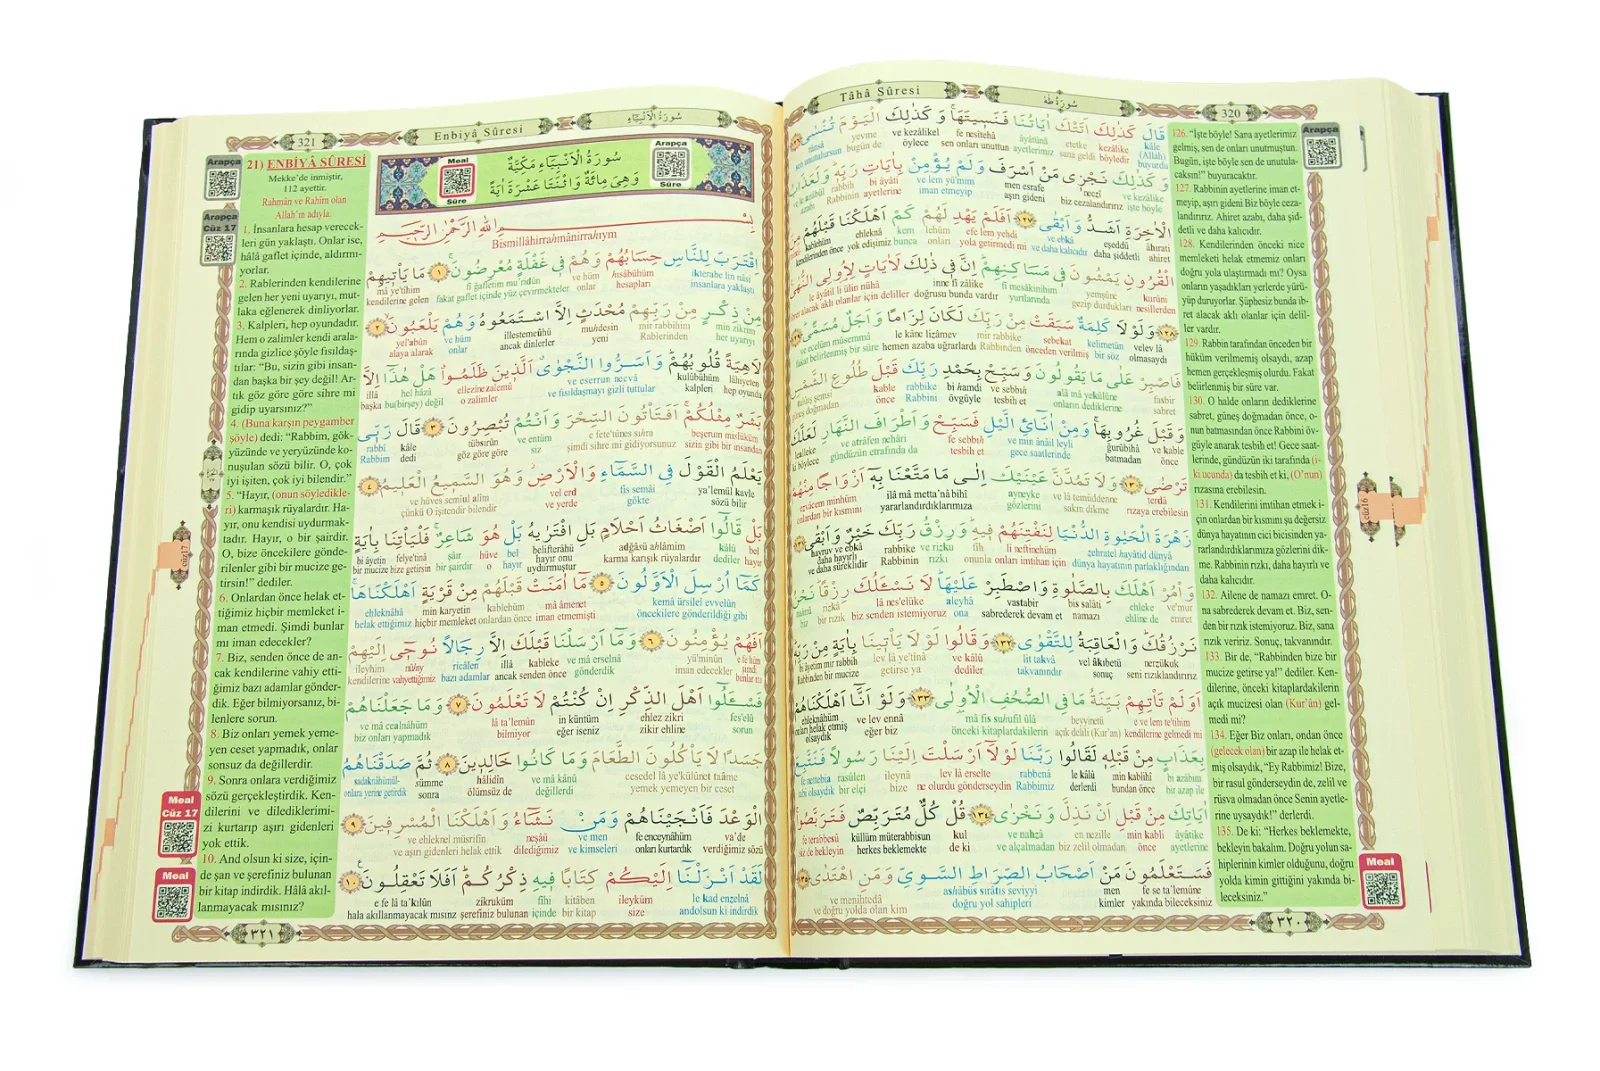 Tâhâ Sûresi
سُورَةُ طٰهٰ
320
Arapça
قَالَ كَذٰلِكَ اَتَتْكَ اٰيَاتُنَا فَنَسِيتَهَاۚ وَ كَذٰلِكَ الْيَوْمَ تُنْسٰى
kâle kezâlike etetke âyâtünâ fe nesîtehâ ve kezâlikel yevme tünsâ
(Allah) buyurdu böyledir sana geldi ayetlerimiz sen onları unuttun öylece bugün de
وَ كَذٰلِكَ نَجْزٖى مَنْ اَسْرَفَ وَلَمْ يُؤْمِنْ بِاٰيَاتِ رَبِّهٖؕ وَلَعَذَابُ
ve kezâlike neczî men esrafe ve lem yü'min bi âyâti rabbih
işte böyle biz cezalandırırız aşırı gideni iman etmeyip ayetlerine Rabbinin azabı
الْاٰخِرَةِ اَشَدُّ وَ اَبْقٰى ﴿١٢٧﴾ اَفَلَمْ يَهْدِ لَهُمْ كَمْ اَهْلَكْنَا قَبْلَهُمْ مِنَ
âhırati eşeddü ve ebkâ efe lem yehdi lehüm kem ehleknâ kablehüm
ahiret daha şiddetli ve daha kalıcıdır yola getirmedi mi onları bunca yok edişimiz kendilerinden önce
الْقُرُونِ يَمْشُونَ فٖى مَسَاكِنِهِمْؕ اِنَّ فٖى ذٰلِكَ لَاٰيَاتٍ لِاُولِى النُّهٰى
kurûni yemşûne fî mesâkinihim inne fî zâlike le âyâtil li ülin nühâ
nesillerden gezip durdukları yurtlarında doğrusu bunda vardır deliller akıl olanlar için
﴿١٢٨﴾ وَلَوْلَا كَلِمَةٌ سَبَقَتْ مِنْ رَبِّكَ لَكَانَ لِزَامًا وَ اَجَلٌ مُسَمًّى
velev lâ kelimetün sebekat mir rabbike le kâne lizâmev ve ecelüm müsemmâ
olmasaydı bir söz önceden verilmiş Rabbinden hemen azaba uğrarlardı fakat belirlenmiş bir süre
فَاصْبِرْ عَلٰى مَا يَقُولُونَ وَ سَبِّحْ بِحَمْدِ رَبِّكَ قَبْلَ طُلُوعِ الشَّمْسِ
fasbir alâ mâ yekûlûne ve sebbih bi hamdi rabbike kable
sabret onların dediklerine tesbih et övgüyle Rabbini önce güneş doğmadan
وَ قَبْلَ غُرُوبِهَاۚ وَمِنْ اٰنَائِ الَّيْلِ فَسَبِّحْ وَ اَطْرَافَ النَّهَارِ لَعَلَّكَ
ve kable ğurûbihâ ve min ânâil leyli fe sebbih ve atrâfen nehâri lealleke
önce batmadan gece saatlerinde tesbih et gündüzün etrafında da ki böylece
تَرْضٰى ﴿١٣٠﴾ وَلَا تَمُدَّنَّ عَيْنَيْكَ اِلٰى مَا مَتَّعْنَا بِهٖٓ اَزْوَاجًا مِنْهُمْ
terdâ ve lâ temüddenne ayneyke ilâ mâ metta'nâ bihî ezvâcem minhüm
rızaya erebilesin sakın dikme gözlerini yararlandırdıklarımıza onlardan bir kısmını
زَهْرَةَ الْحَيٰوةِ الدُّنْيَا لِنَفْتِنَهُمْ فٖيهِؕ وَ رِزْقُ رَبِّكَ خَيْرٌ وَ اَبْقٰى
zehratel hayâtid dünyâ li neftinehüm fîh ve rizku rabbike hayruv ve ebkâ
dünya hayatının parlaklığından onları imtihan için onunla rızkı Rabbinin daha hayırlı ve daha süreklidir
وَأْمُرْ اَهْلَكَ بِالصَّلٰوةِ وَاصْطَبِرْ عَلَيْهَاؕ لَا نَسْئَلُكَ رِزْقًاؕ نَحْنُ
ve'mur ehleke bis salâti vastabir aleyhâ lâ nes'elüke rizkâ
emret ehline de namazı sabrederek devam et ona biz senden istemiyoruz rızık biz
نَرْزُقُكَؕ وَالْعَاقِبَةُ لِلتَّقْوٰى ﴿١٣٢﴾ وَقَالُوا لَوْ لَا يَأْتٖينَا بِاٰيَةٍ مِنْ رَبِّهٖؕ
nerzükuk vel âkıbetü lit takvâ ve kâlû lev lâ ye'tînâ bi âyetim mir rabbih
seni rızıklandırırız sonuç takvanındır dediler getirse ya bir mucize Rabbinden
اَوَلَمْ تَأْتِهِمْ بَيِّنَةُ مَا فِى الصُّحُفِ الْاُولٰى ﴿١٣٣﴾ وَلَوْ اَنَّٓا اَهْلَكْنَاهُمْ
e ve lem te'tihim beyyinetü mâ fis suhufil ûlâ ve lev ennâ ehleknâhüm
kendilerine gelmedi mi açık delili (Kur'an) önceki kitaplardakilerin eğer biz onları helak etmiş olsaydık
بِعَذَابٍ مِنْ قَبْلِهٖ لَقَالُوا رَبَّنَا لَوْلَٓا اَرْسَلْتَ اِلَيْنَا رَسُولًا فَنَتَّبِعَ
bi azâbim min kablihî le kâlû rabbenâ lev lâ erselte ileynâ rasûlen fe nettebia
bir azap ile bundan önce derlerdi Rabbimiz ne olurdu gönderseydin bize bir elçi
اٰيَاتِكَ مِنْ قَبْلِ اَنْ نَذِلَّ وَ نَخْزٰى ﴿١٣٤﴾ قُلْ كُلٌّ مُتَرَبِّصٌ فَتَرَبَّصُوا
âyâtike min kabli en nezille ve nahzâ kul küllüm müterabbisun fe terabbesû
ayetlerine önce biz zelil olmadan ve alçalmadan de ki herkes beklemekte siz de bekleyin
فَسَتَعْلَمُونَ مَنْ اَصْحَابُ الصِّرَاطِ السَّوِىِّ وَمَنِ اهْتَدٰى ﴿١٣٥﴾
fe se ta'lemûne men ashâbüs sırâtıs seviyyi ve menihtedâ
yakında bileceksiniz kimler doğru yol sahipleri ve doğru yolda olan kim
126. “İşte böyle! Sana ayetlerimiz
gelmiş, sen de onları unutmuştun.
Bugün, işte böyle sen de unutula-
caksın!” buyuracaktır.
127. Rabbinin ayetlerine iman et-
meyip, aşırı gideni Biz böyle ceza-
landırırız. Ahiret azabı, daha şid-
detli ve daha kalıcıdır.
128. Kendilerinden önceki nice
memleketi helak etmemiz onları
doğru yola ulaştırmadı mı? Oysa
onların yaşadıkları yerlerde yürü-
yüp duruyorlar. Şüphesiz bunda ib-
ret alacak aklı olanlar için delil-
ler vardır.
129. Rabbin tarafından önceden bir
hüküm verilmemiş olsaydı, azap
hemen gerçekleşmiş olurdu. Fakat
belirlenmiş bir süre var.
130. O halde onların dediklerine
sabret, güneş doğmadan önce, o-
nun batmasından önce Rabbini öv-
güyle anarak tesbih et! Gece saat-
lerinde, gündüzün iki tarafında (i-
ki ucunda) da tesbih et ki, (O’nun)
rızasına erebilesin.
131. Kendilerini imtihan etmek i-
çin onlardan bir kısmını şu değersiz
dünya hayatının cici bicisinden ya-
rarlandırdıklarımıza gözlerini dik-
me. Rabbinin rızkı, daha hayırlı ve
daha kalıcıdır.
132. Ailene de namazı emret. O-
na sabrederek devam et. Biz, sen-
den bir rızık istemiyoruz. Biz, sana
rızık veririz. Sonuç, takvanındır.
133. Bir de, “Rabbinden bize bir
mucize getirse ya!” dediler. Kend-
ilerine, önceki kitaplardakilerin
açık mucizesi olan (Kur’ân) gel-
medi mi?
134. Eğer Biz onları, ondan önce
(gelecek olan) bir azap ile helak et-
miş olsaydık, “Ey Rabbimiz! Bize,
bir rasul gönderseydin de, zelil ve
rüsva olmadan önce Senin ayetle-
rine uysaydık!” derlerdi.
135. De ki: “Herkes beklemekte,
bekleyin bakalım. Doğru yolun sa-
hiplerinin kimler olduğunu, doğru
yolda kimin gittiğini yakında bi-
leceksiniz.”
cüz16
Meal
٣٢٠
321
Enbiyâ Sûresi
سُورَةُ الْاَنْبِيَٓاءِ
Arapça
Arapça
Cüz 17
Meal
Sûre
Arapça
Sûre
سُورَةُ الْاَنْبِيَٓاءِ مَكِّيَّةٌ
وَهِىَ مِائَةٌ وَاثْنَتَا عَشْرَةَ اٰيَةً
بِسْمِ اللّٰهِ الرَّحْمٰنِ الرَّحٖيمِ
Bismillâhirrahmânirrahîym
اِقْتَرَبَ لِلنَّاسِ حِسَابُهُمْ وَهُمْ فٖى غَفْلَةٍ مُعْرِضُونَۚ ﴿١﴾ مَا يَأْتٖيهِمْ
ikterabe lin nâsi hısâbühüm ve hüm fî ğafletim mu'ridûn mâ ye'tîhim
insanlara yaklaştı hesapları onlar fakat gaflet içinde yüz çevirmekteler kendilerine gelen
مِنْ ذِكْرٍ مِنْ رَبِّهِمْ مُحْدَثٍ اِلَّا اسْتَمَعُوهُ وَهُمْ يَلْعَبُونَۙ ﴿٢﴾
min zikrim mir rabbihim muhdesin illestemeûhü ve hüm yel'abûn
her uyarıyı Rablerinden yeni ancak dinlerler onlar alaya alarak
لَاهِيَةً قُلُوبُهُمْؕ وَ اَسَرُّوا النَّجْوٰىۗ اَلَّذٖينَ ظَلَمُواۗ هَلْ هٰذَٓا اِلَّا
lâhiyeten kulûbühüm ve eserrun necvâ ellezînezalemû hel hâzâ illâ
hep oyunda kalpleri ve fısıldaşmayı gizli tuttular o zalimler bu(birşey) değil başka
بَشَرٌ مِثْلُكُمْۚ اَفَتَأْتُونَ السِّحْرَ وَ اَنْتُمْ تُبْصِرُونَ ﴿٣﴾ قَالَ رَبّٖى
beşerum mislüküm e fete'tûnes sıhra ve entüm tübsırûn kâle rabbî
sizin gibi bir insandan şimdi sihre mi gidiyorsunuz siz göz göre göre dedi Rabbim
يَعْلَمُ الْقَوْلَ فِى السَّمَٓاءِ وَالْاَرْضِؗ وَهُوَ السَّمٖيعُ الْعَلٖيمُ ﴿٤﴾
ya'lemül kavle fis semâi vel erd ve hüves semîul alîm
sözü bilir gökte ve yerde çünkü O işitendir bilendir
بَلْ قَالُٓوا اَضْغَاثُ اَحْلَامٍ بَلِ افْتَرٰيهُ بَلْ هُوَ شَاعِرٌۚ فَلْيَأْتِنَا بِاٰيَةٍ
bel kâlû adğâsü ahlâmim belifterâhü bel hüve şâır felye'tinâ bi âyetin
hayır dediler karma karışık rüyalardır hayır onu uydurmuştur hayır o bir şairdir bize getirsin bir mucize
كَمَٓا اُرْسِلَ الْاَوَّلُونَ ﴿٥﴾ مَٓا اٰمَنَتْ قَبْلَهُمْ مِنْ قَرْيَةٍ اَهْلَكْنَاهَاۚ
kemâ ürsilel evvelûn mâ âmenet kablehüm min karyetin ehleknâhâ
öncekilere gönderildiği gibi iman etmemişti onlardan önce bir memleket helak ettiğimiz
اَفَهُمْ يُؤْمِنُونَ ﴿٦﴾ وَمَٓا اَرْسَلْنَا قَبْلَكَ اِلَّا رِجَالًا نُوحٖٓى اِلَيْهِمْ
e fe hüm yü'minûn ve mâ erselnâ kableke illâ ricâlen nûhıy ileyhim
iman edecekler gönderdik senden önce ancak bazı adamlar kendilerine vahyettiğimiz
فَسْئَلُٓوا اَهْلَ الذِّكْرِ اِنْ كُنْتُمْ لَا تَعْلَمُونَ ﴿٧﴾ وَمَا جَعَلْنَاهُمْ
fes'elû ehlez zikri in küntüm lâ ta'lemûn ve mâ cealnâhüm
sorun zikir ehline eğer iseniz bilmiyor biz onları yapmadık
جَسَدًا لَا يَأْكُلُونَ الطَّعَامَ وَمَا كَانُوا خَالِدٖينَ ﴿٨﴾ ثُمَّ صَدَقْنَاهُمُ
cesedel lâ ye'külûnet taâme ve mâ kânû hâlidîn sümme sadaknâhümül
yemek yemeyen bir ceset değillerdi ölümsüz de sonra onlara yerine getirdik
الْوَعْدَ فَاَنْجَيْنَاهُمْ وَمَنْ نَشَٓاءُ وَ اَهْلَكْنَا الْمُسْرِفٖينَ ﴿٩﴾
va'de fe enceynâhüm ve men neşâü ve ehleknel müsrifîn
verdiğimiz sözü onları kurtardık ve kimseleri dilediğimiz ve aşırı gidenleri helak ettik
لَقَدْ اَنْزَلْنَٓا اِلَيْكُمْ كِتَابًا فٖيهِ ذِكْرُكُمْؕ اَفَلَا تَعْقِلُونَ ﴿١٠﴾
le kad enzelnâ ileyküm kitâben fîhi zikruküm e fe lâ ta'kılûn
andolsun ki indirdik size bir kitap içinde şerefiniz bulunan hala akıllanmayacak mısınız
21) ENBİYÂ SÛRESİ
Mekke’de inmiştir,
112 ayettir.
Rahmân ve Rahîm olan
Allah’ın adıyla.
1. İnsanlara hesap verecek-
leri gün yaklaştı. Onlar ise,
hâlâ gaflet içinde, aldırmı-
yorlar.
2. Rablerinden kendilerine
gelen her yeni uyarıyı, mut-
laka eğlenerek dinliyorlar.
3. Kalpleri, hep oyundadır.
Hem o zalimler kendi arala-
rında gizlice şöyle fısıldaş-
tılar: “Bu, sizin gibi insan-
dan başka bir şey değil! Ar-
tık göz göre göre sihre mi
gidip uyarsınız?”
4. (Buna karşın peygamber
şöyle) dedi: “Rabbim, gök-
yüzünde ve yeryüzünde ko-
nuşulan sözü bilir. O, çok
iyi işiten, çok iyi bilendir.”
5. “Hayır, (onun söyledikle-
ri) karmaşık rüyalardır. Ha-
yır, onu kendisi uydurmak-
tadır. Hayır, o bir şairdir.
O, bize öncekilere gönde-
rilenler gibi bir mucize ge-
tirsin!” dediler.
6. Onlardan önce helak et-
tiğimiz hiçbir memleket i-
man etmedi. Şimdi bunlar
mı iman edecekler?
7. Biz, senden önce de an-
cak kendilerine vahiy etti-
ğimiz bazı adamlar gönder-
dik. Eğer bilmiyorsanız, bi-
lenlere sorun.
8. Biz onları yemek yeme-
yen ceset yapmadık, onlar
sonsuz da değillerdir.
9. Sonra onlara verdiğimiz
sözü gerçekleştirdik. Ken-
dilerini ve dilediklerimi-
zi kurtarıp aşırı gidenleri
yok ettik.
10. And olsun ki size, için-
de şan ve şerefiniz bulunan
bir kitap indirdik. Hâlâ akıl-
lanmayacak mısınız?
cüz17
Meal
Cüz 17
Meal
٣٢١